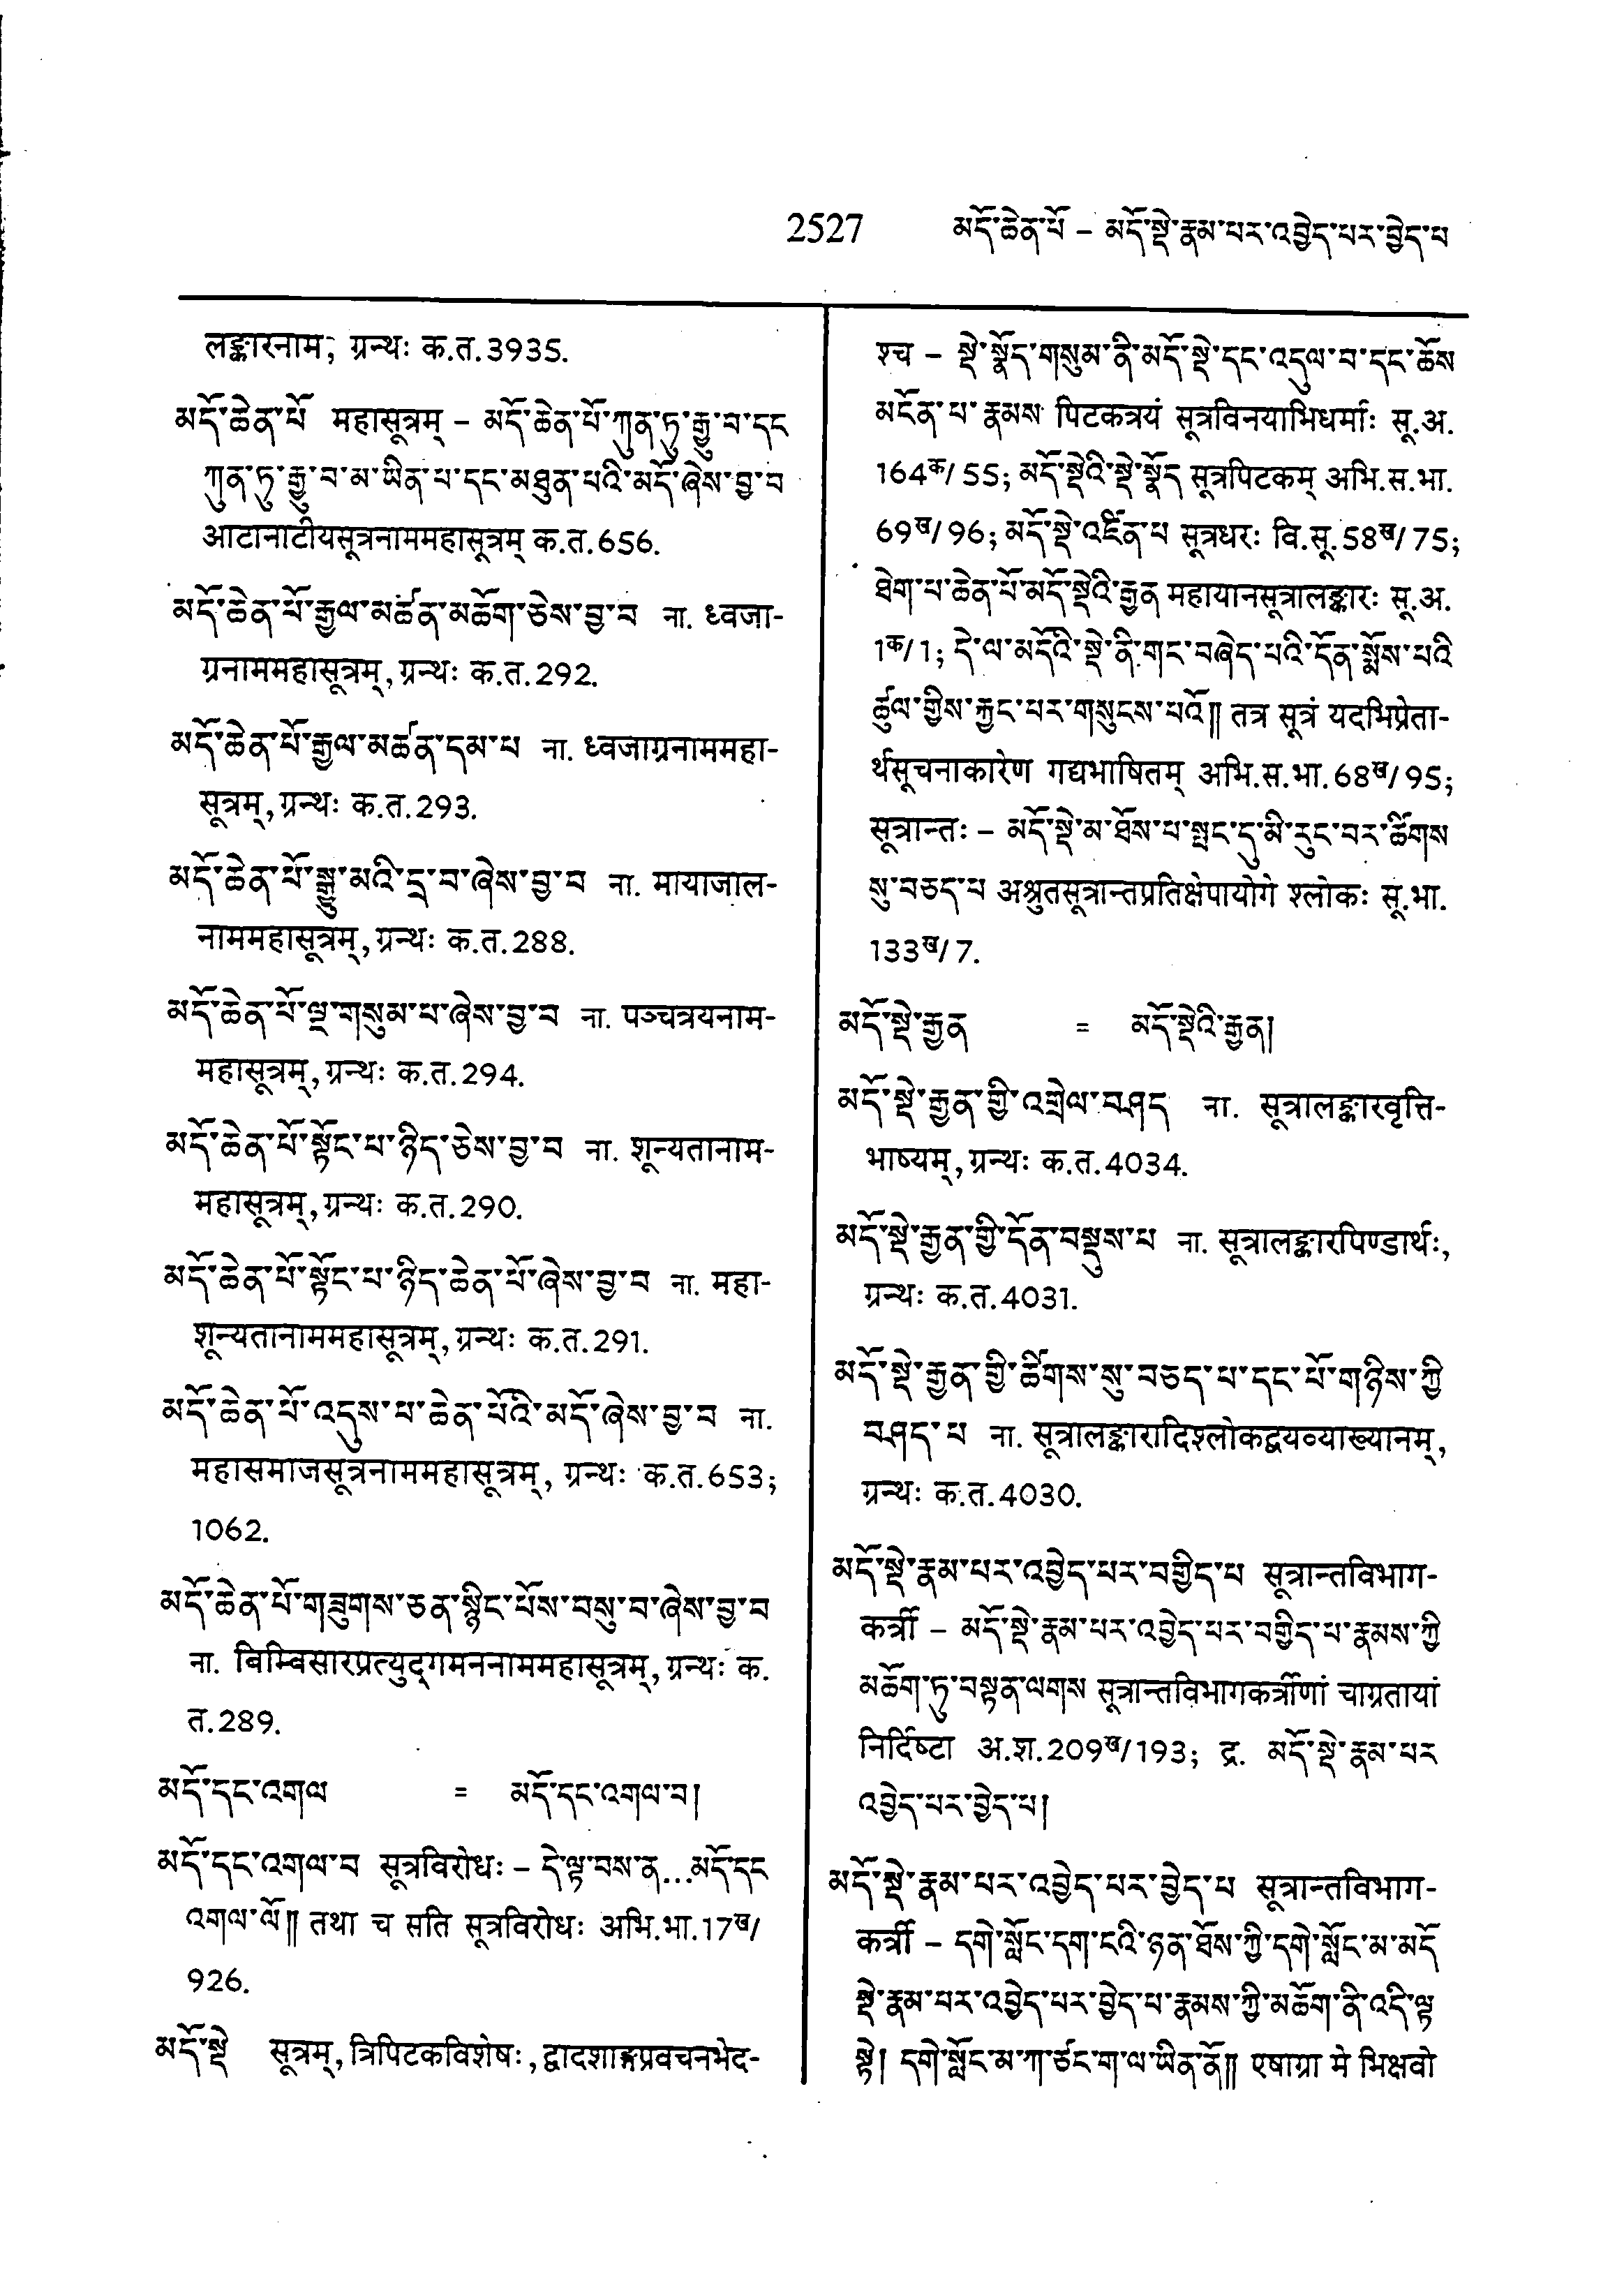 2527 མདོ་ཆེན་པོ – མདོ་སྡེ་རྣམ་པར་འབྱེད་པར་བྱེད་པ
लङ्कारनाम, ग्रन्थः क.त.3935.
མདོ་ཆེན་པོ महासूत्रम् – མདོ་ཆེན་པོ་ཀུན་ཏུ་རྒྱུ་བ་དང
ཀུན་ཏུ་རྒྱུ་བ་མ་ཡིན་པ་དང་མཐུན་པའི་མདོ་ཞེས་བྱ་བ
आटानाटीयसूत्रनाममहासूत्रम् क.त.656.
མདོ་ཆེན་པོ་རྒྱལ་མཚན་མཆོག་ཅེས་བྱ་བ ना. ध्वजा-
ग्रनाममहासूत्रम्, ग्रन्थः क.त.292.
མདོ་ཆེན་པོ་རྒྱལ་མཚན་དམ་པ ना. ध्वजाग्रनाममहा-
सूत्रम्, ग्रन्थः क.त.293.
མདོ་ཆེན་པོ་སྒྱུ་མའི་དྲ་བ་ཞེས་བྱ་བ ना. मायाजाल-
नाममहासूत्रम्, ग्रन्थः क.त.288.
མདོ་ཆེན་པོ་ལྔ་གསུམ་པ་ཞེས་བྱ་བ ना. पञ्चत्रयनाम-
महासूत्रम्, ग्रन्थः क.त.294.
མདོ་ཆེན་པོ་སྟོང་པ་ཉིད་ཅེས་བྱ་བ ना. शून्यतानाम-
महासूत्रम्, ग्रन्थः क.त.290.
མདོ་ཆེན་པོ་སྟོང་པ་ཉིད་ཆེན་པོ་ཞེས་བྱ་བ ना. महा-
शून्यतानाममहासूत्रम्, ग्रन्थः क.त.291.
མདོ་ཆེན་པོ་འདུས་པ་ཆེན་པོའི་མདོ་ཞེས་བྱ་བ ना.
महासमाजसूत्रनाममहासूत्रम्, ग्रन्थः क.त.653;
1062.
མདོ་ཆེན་པོ་གཟུགས་ཅན་སྙིང་པོས་བསུ་བ་ཞེས་བྱ་བ
ना. बिम्विसारप्रत्युद्गमननाममहासूत्रम्, ग्रन्थः क.
त.289.
མདོ་དང་འགལ = མདོ་དང་འགལ་བ།
མདོ་དང་འགལ་བ सूत्रविरोधः – དེ་ལྟ་བས་ན...མདོ་དང
འགལ་ལོ༎ तथा च सति सूत्रविरोधः अभि.भा.17ख/
926.
མདོ་སྡེ सूत्रम्, त्रिपिटकविशेषः, द्वादशाङ्गप्रवचनभेद-
श्च – སྡེ་སྣོད་གསུམ་ནི་མདོ་སྡེ་དང་འདུལ་བ་དང་ཆོས
མངོན་པ་རྣམས पिटकत्रयं सूत्रविनयाभिधर्माः सू.अ.
164क/55; མདོ་སྡེའི་སྡེ་སྣོད सूत्रपिटकम् अभि.स.भा.
69ख/96; མདོ་སྡེ་འཛིན་པ सूत्रधरः वि.सू.58ख/75;
ཐེག་པ་ཆེན་པོ་མདོ་སྡེའི་རྒྱན महायानसूत्रालङ्कारः सू.अ.
1क/1; དེ་ལ་མདོའི་སྡེ་ནི་གང་བཞེད་པའི་དོན་སྨོས་པའི
ཚུལ་གྱིས་རྐྱང་པར་གསུངས་པའོ༎ तत्र सूत्रं यदभिप्रेता-
र्थसूचनाकारेण गद्यभाषितम् अभि.स.भा.68ख/95;
सूत्रान्तः – མདོ་སྡེ་མ་ཐོས་པ་སྤང་དུ་མི་རུང་བར་ཚིགས
སུ་བཅད་པ अश्रुतसूत्रान्तप्रतिक्षेपायोगे श्लोकः सू.भा.
133ख/7.
མདོ་སྡེ་རྒྱན = མདོ་སྡེའི་རྒྱན།
མདོ་སྡེ་རྒྱན་གྱི་འགྲེལ་བཤད ना. सूत्रालङ्कारवृत्ति-
भाष्यम्, ग्रन्थः क.त.4034.
མདོ་སྡེ་རྒྱན་གྱི་དོན་བསྡུས་པ ना. सूत्रालङ्कारपिण्डार्थः,
ग्रन्थः क.त.4031.
མདོ་སྡེ་རྒྱན་གྱི་ཚིགས་སུ་བཅད་པ་དང་པོ་གཉིས་ཀྱི
བཤད་པ ना. सूत्रालङ्कारादिश्लोकद्वयव्याख्यानम्,
ग्रन्थः क.त.4030.
མདོ་སྡེ་རྣམ་པར་འབྱེད་པར་བགྱིད་པ सूत्रान्तविभाग-
कर्त्री – མདོ་སྡེ་རྣམ་པར་འབྱེད་པར་བགྱིད་པ་རྣམས་ཀྱི
མཆོག་ཏུ་བསྟན་ལགས सूत्रान्तविभागकर्त्रीणां चाग्रतायां
निर्दिष्टा अ.श.209ख/193; द्र. མདོ་སྡེ་རྣམ་པར
འབྱེད་པར་བྱེད་པ།
མདོ་སྡེ་རྣམ་པར་འབྱེད་པར་བྱེད་པ सूत्रान्तविभाग-
कर्त्री – དགེ་སློང་དག་ངའི་ཉན་ཐོས་ཀྱི་དགེ་སློང་མ་མདོ
སྡེ་རྣམ་པར་འབྱེད་པར་བྱེད་པ་རྣམས་ཀྱི་མཆོག་ནི་འདི་ལྟ
སྟེ། དགེ་སློང་མ་ཀ་ཙང་ག་ལ་ཡིན་ནོ༎ एषाग्रा मे भिक्षवो